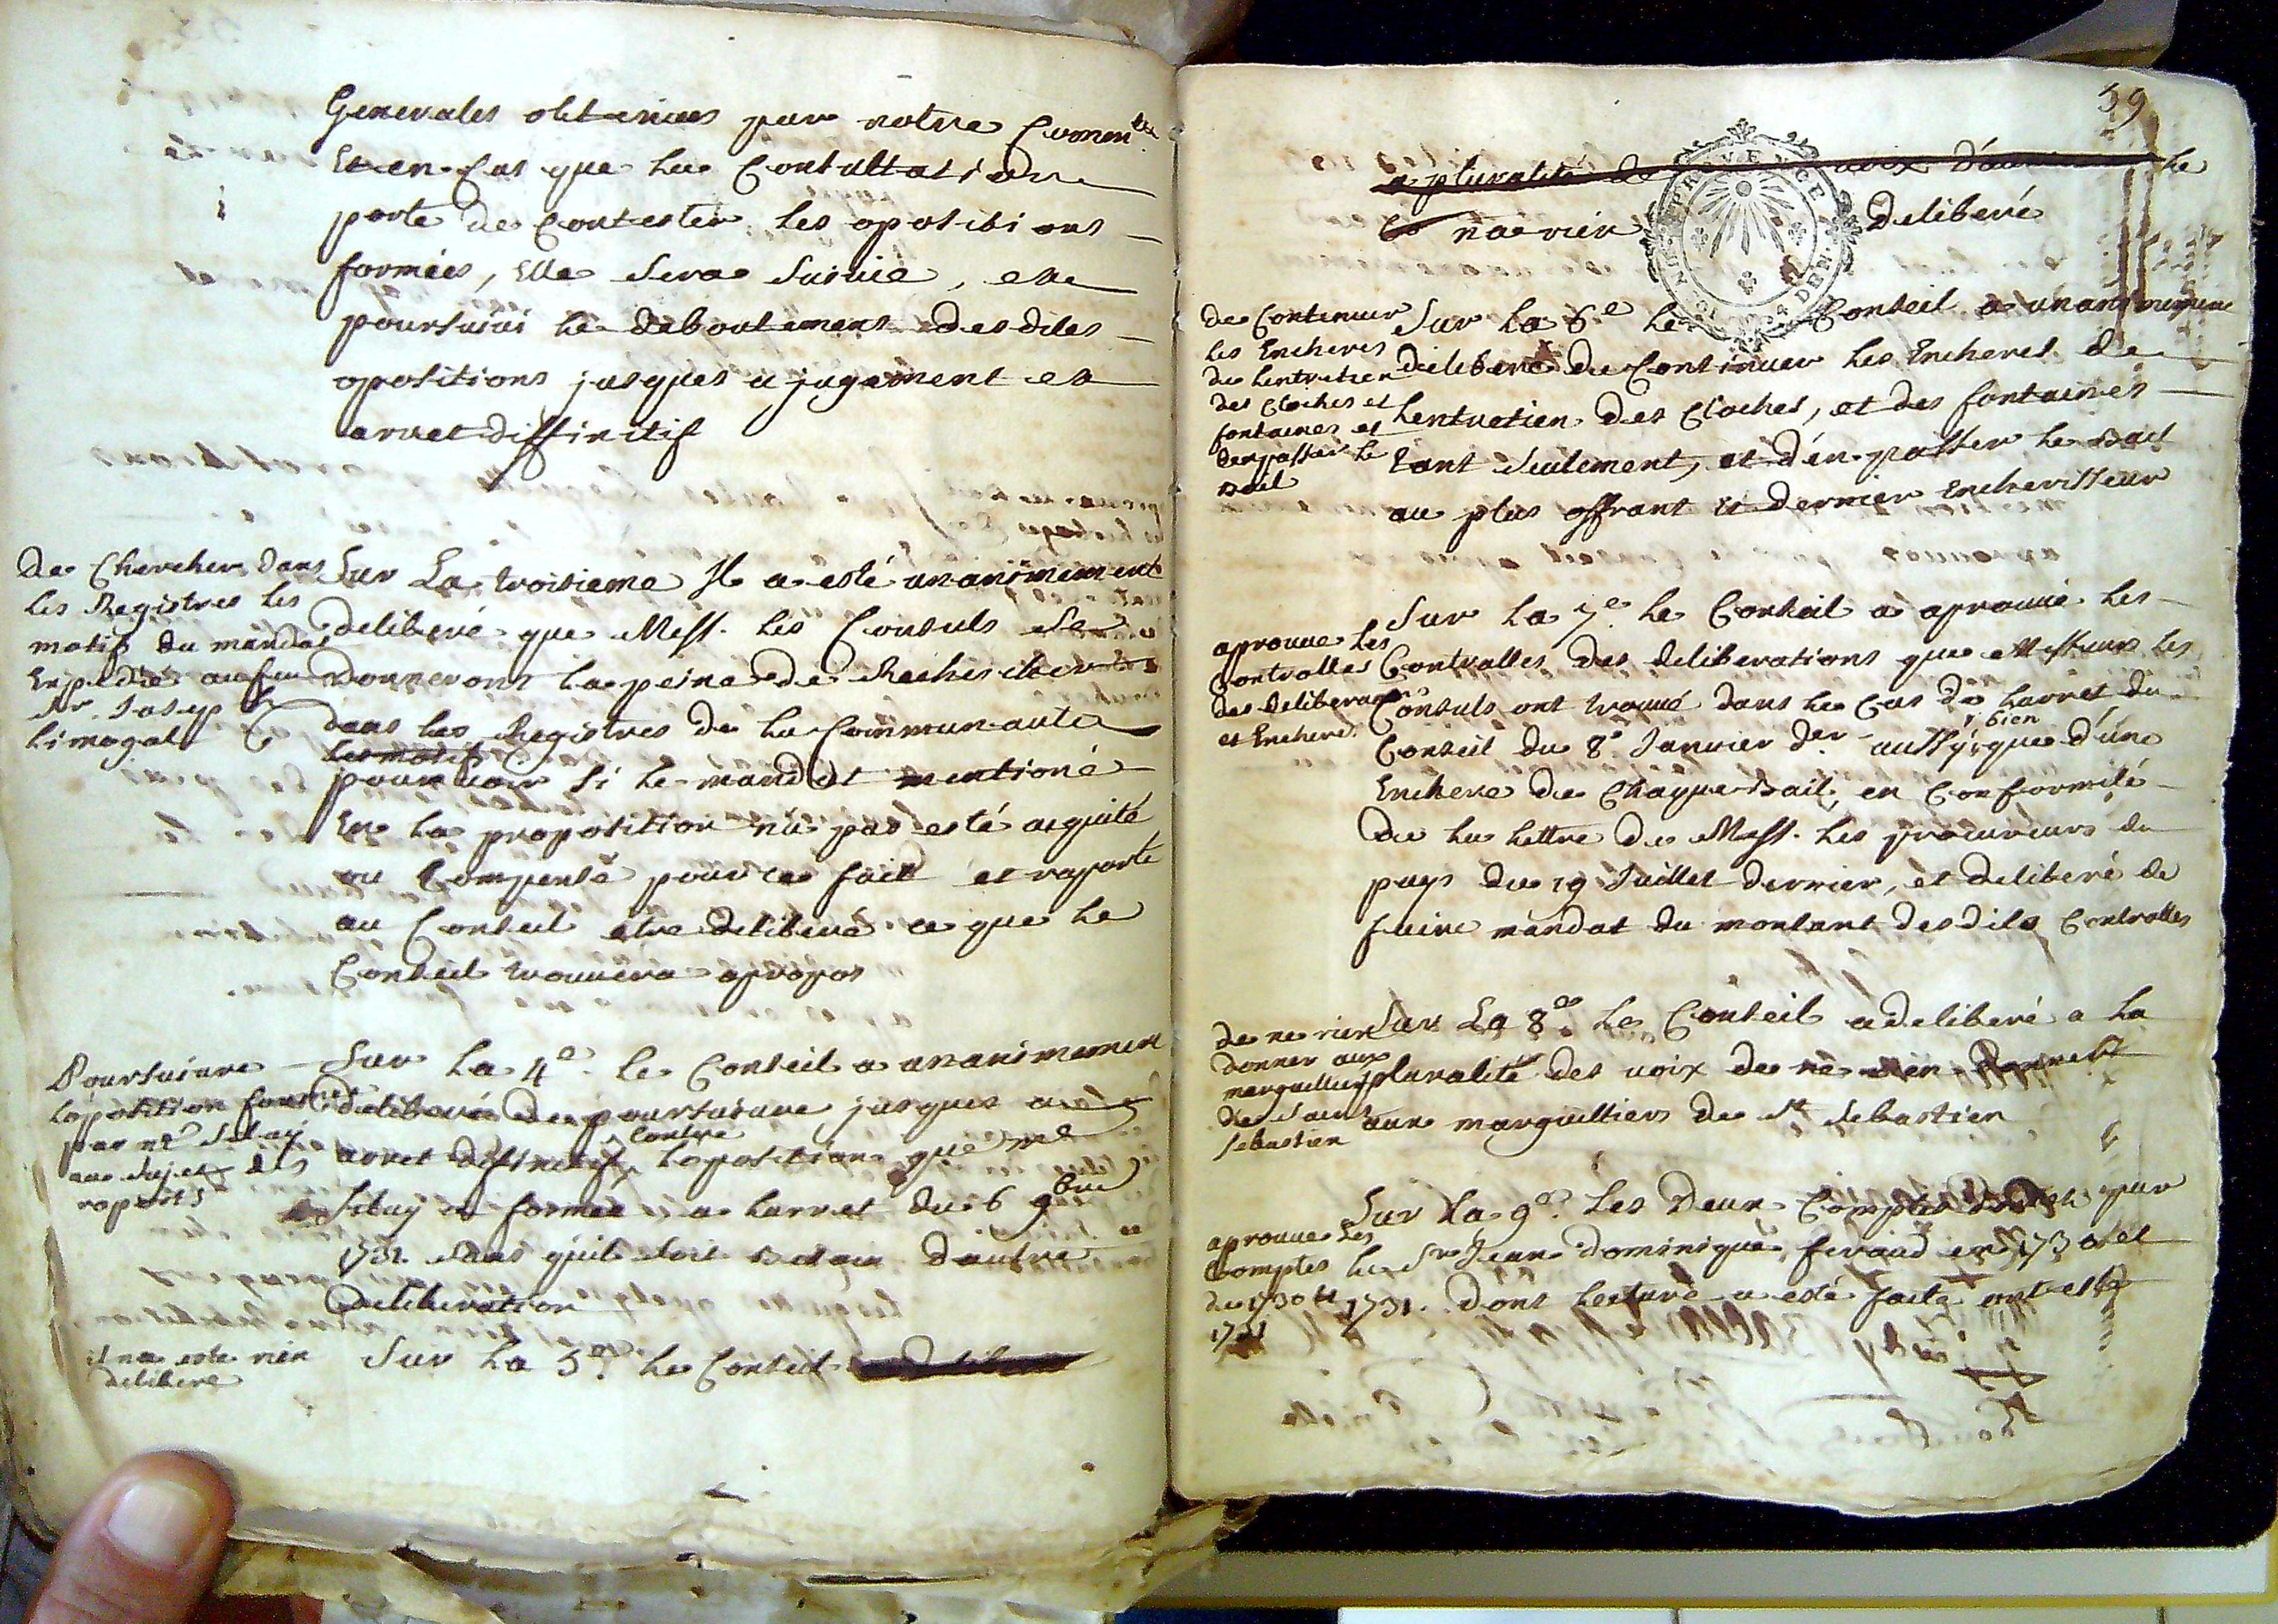 Generales obtenues par notre Commun.té
Et en cas que la Consultation
porte de Contester les opositions
formées, Elle sera suivie, et
poursuivi le deboutement desdites
opositions jusques a jugement et
arret diffinitif
De Chercher dans
les Registres les
motifs du mandat
Expedié au feu
Sr. Joseph
limogal
Sur La troisieme Il a esté unanimement
deliberé que Mess. les Consuls se
donneront la peine de Rechercher
dans les Registres de la Communauté
les motifs
pour voir si le mandat mentioné
En la proposition n'a pas esté aquité
ou Compensé pour ce fait et raporté
au Conseil etre deliberé ce que le
Conseil trouvera apropos
Poursuivre
loposition formée
par me Siluy
au sujet des
raports
Sur la 4e. le Conseil a unanimement
deliberé de poursuivre jusques a
arret définitif contre loposition que me
Siluy a formée a larret du 6 9bre
1731. sans quil soit besoin dautre
deliberation
il na esté rien
deliberé
Sur la 5e. le Conseil
39
PROVENCE
DEN.
a pluralité de voix le
na rien deliberé
de Continuer
les Encheres
de lentretien
des Cloches et
fontaines et
den passer le
bail
Sur la 6e le Conseil a unanimement
deliberé de Continuer les Encheres de
lentretien des Cloches, et des fontaines
tant seulement, et d'en passer le bail
au plus offrant et dernier Encherisseur
aprouve les
Controlles
des deliberaons
et Enchere.
Sur la 7e. le Conseil a aprouvé les
Controlles des deliberations que Messieurs les
Consuls ont trouvé dans le Cas de larret du
Conseil du 8e Janvier der aussy bien que d'une
Enchere de Chaque bail, en Conformité
de la lettre de Mess. les procureurs du
pays du 19 Juillet dernier, et deliberé de
faire mandat du montant desdits Controlles
de ne rien
donner aux
marguilliers
de saint
sebastien
Sur La 8e. le Conseil a deliberé a la
pluralité des voix de ne rien donner
aux marguilliers de St Sebastien
aprouve les
Comptes
de 1730 et
1731
Sur la 9e. les deux Comptes par
le Sr Jean Dominique feraud en 1730 et
1731. dont lecture a esté faite ont esté